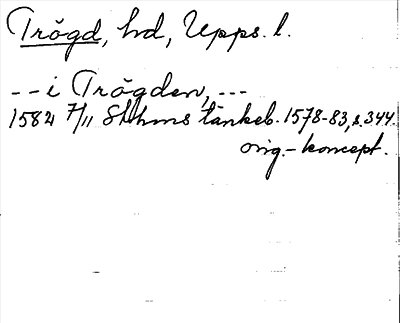 Trögd, hd, Upps. l.
-- i Trögden, ---
1582 7/11 Sthms tänkeb. 1578-83, s. 344.
orig.-koncept.